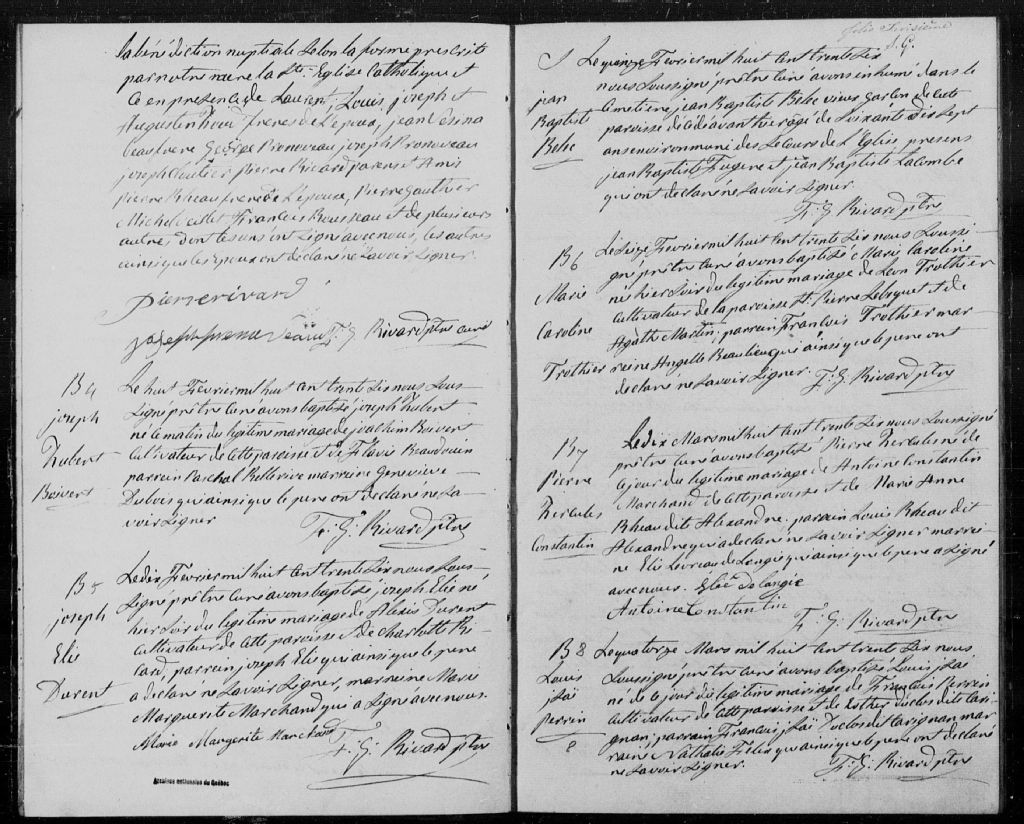 la bénédiction nuptiale selon la forme prescrite
par notre mere la Ste. Eglise Catholique et
ce en presence de Laurent, Louis, joseph et
Augustin freres de l'epoux, jean
beaufrere George Pronovau joseph Pronovau
joseph Gautier pierre Ricard parens et Amis
pierre Rheau frere de l'epouse, Pierre Gauthier
Michel et Francois Rousseau et de plusieurs
autres, dont les uns ont signé avec nous, les autres
ainsi que les Epoux ont déclaré ne savoir signer.
pierre rivard
joseph F: G: Rivard ptre curé
B4
joseph
Hubert
Boivert
Le huit Fevrier mil huit cent trente six nous sous-
signé prêtre curé avons baptisé joseph hubert
né le matin du legitime mariage de joachim Boivert
cultivateur de cette paroisse et de Flavie Beaudouin
parrain Paschal Bellerive marraine Genevieve
Dubois qui ainsi que le pere ont declaré ne sa-
voir signer
F: G: Rivard ptre
B5
joseph
Elie
Durent
Le dix Fevrier mil huit cent trente six nous sous-
signé prêtre curé avons baptisé joseph Elie né
hier soir du legitime mariage de Alexis Durent
cultivateur de cette paroisse et de Charlotte Ri-
card, parrain joseph Elie qui ainsi que le pere
a declaré ne savoir signer, marraine Marie
Marguerite Marchand qui a signé avec nous.
Marie Margerite Marchand F: G: Rivard ptre
Archives nationales du Québec
folio Troisième
F. G.
S
jean
Baptiste
Bebe
Le quinze Fevrier mil huit cent trente six
nous soussigné prêtre curé avons inhumé dans le
cimetiere, jean Baptiste Bebe vieux garson de cette
paroisse décédé avant hier agé de soixante dix sept
ans environ muni des secours de L'Eglise, presens
jean Baptiste Eugene et jean Baptiste Lacombe
qui ont declaré ne savoir signer.
F: G: Rivard ptre
B6
Marie
Caroline
Trothier
Le seize Fevrier mil huit cent trente six nous soussi-
gné prêtre curé avons baptisé Marie Caroline
née hier soir du legitime mariage de Leon Trothier
cultivateur de la paroisse St. Pierre Lebequet et de
Agathe Martin; parrain Francois Trothier mar-
reine Angelle Beaulieu qui ainsi que le pere ont
declaré ne savoir signer. F: G: Rivard ptre
B7
Pierre
Hercules
Constantin
Le dix Mars mil huit cent trente six nous soussigné
prêtre curé avons baptisé Pierre Hercules né de
ce jour du legitime mariage de Antoine Constantin
Marchand de cette paroisse et de Marie Anne
Rheau dite Alexandre. parrain Louis Rheau dit
Alexandre qui a declaré ne savoir signer marrei-
ne Elie de Langie qui ainsi que le pere a signé
avec nous. Elie de langie
Antoine Constantin
F: G: Rivard ptre
B8
Louis
jsaï
perrin
8
Le quatorze Mars mil huit cent trente six nous
soussigné prêtre curé avons baptisé Louis jsaï
né de ce jour du legitime mariage de François Perrin
cultivateur de cette paroisse et de Esther duclos dite Cari-
gnan; parrain Francois jsaï Duclos dit Carignan mar-
raine Nathalie Felix qui ainsi que le pere ont declaré
ne savoir signer. F: G: Rivard ptre